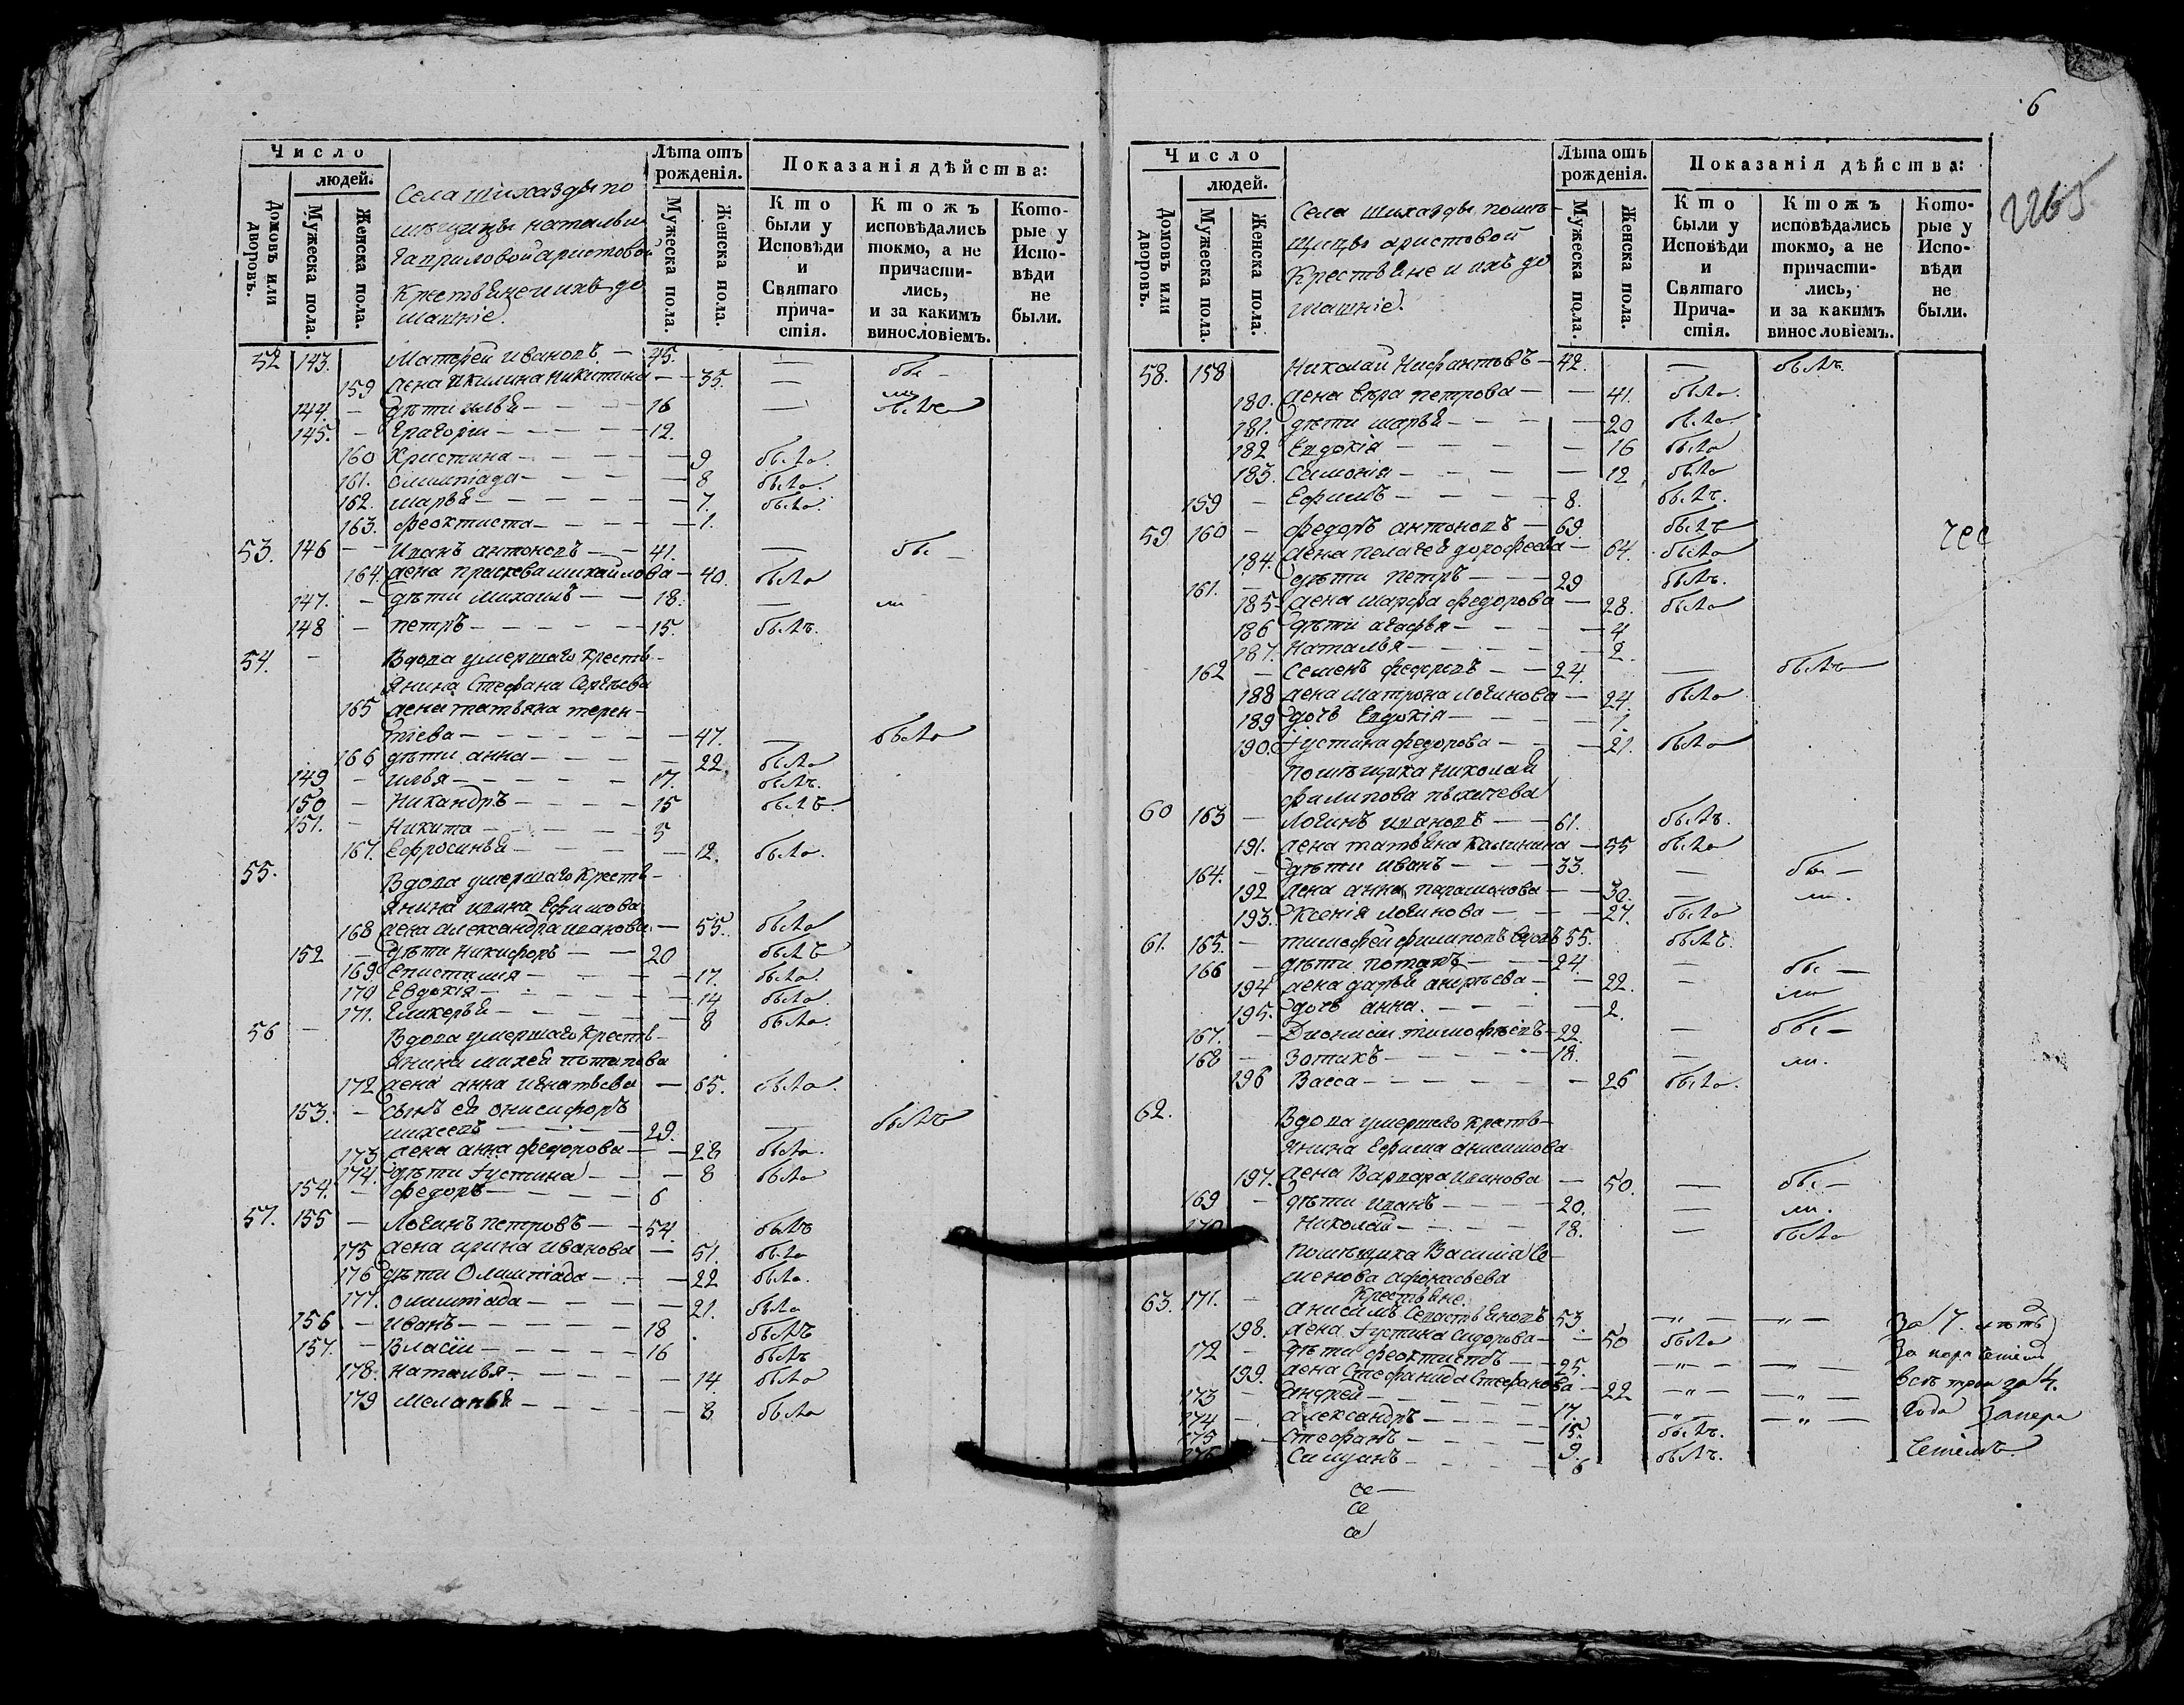 Число
людей.
Домовъ или дворовъ.
Мужеска пола.
Женска пола.
Села Шихазды по
мѣщицы Натальи
Гавриловой Аристовой
Крестьяне и ихъ до
машніе.
Лѣта отъ рожденія.
Мужеска пола.
Женска пола.
Показанія дѣйства:
Кто были у Исповѣди и Святаго причастія.
Ктожъ исповѣдались токмо, а не причастились, и за какимъ винословіемъ.
Которые у Исповѣди не были.
52 143. Матфей Ивановъ — 45. — бы —
159 жена Акилина Никитина — 35. — ли
144. — дѣти Илья — 16 — былъ
145. — Григорій — 12.
160 Христина — 9 была.
161. Олимпіада — 8 была.
162. Марья — 7. была.
163. Феоктиста — 1.
53. 146 — Иванъ Антоновъ — 41. — бы —
164. жена Праскева Михайлова — 40. была
147. — дѣти Михаилъ — 18. — ли
148 — Петръ — 15. былъ.
54. — Вдова умершаго кресть-
янина Стефана Сергѣева
165 жена Татьяна Терен-
тіева — 47. — была
166 дѣти Анна — 22. была
149 — Илья — 17. былъ.
150 — Никандръ — 15 былъ.
151. — Никита — 5
167. Ефросинья — 12. была.
55. Вдова умершаго кресть-
янина Ивана Ефимова
168 жена Александра Иванова — 55. была
152 — дѣти Никифоръ — 20 былъ
169. Епистимия — 17. была.
170 Евдокія — 14 была.
171. Гликерья — 8 была.
56 — Вдова умершаго кресть-
янина Михея Потапова
172 жена Анна Игнатьева — 65. была.
153. — сынъ ея Онисифоръ
Михеевъ — 29. — былъ
173 жена Анна Федорова — 28 была.
174. дѣти Іустина — 8 была
154. — Федоръ — 6
57. 155 — Логинъ Петровъ — 54. былъ
175 жена Ирина Иванова — 51. была
176 дѣти Олимпіада — 22 была.
177. Олимпіада — 21. была
156 — Иванъ — 18 былъ
157. — Власій — 16 былъ
178. Наталья — 14. была
179 Меланья — 8 была
6
2265
Число
людей.
Домовъ или дворовъ.
Мужеска пола.
Женска пола.
Села Шихазды помѣ-
щицы Аристовой
Крестьяне и ихъ до
машніе.
Лѣта отъ рожденія.
Мужеска пола.
Женска пола.
Показанія дѣйства:
Кто были у Исповѣди и Святаго Причастія.
Ктожъ исповѣдались токмо, а не причастились, и за какимъ винословіемъ.
Которые у Испо-вѣди не были.
58. 158 Николай Нифантовъ — 42. — былъ.
180. жена Вѣра Петрова — 41. была.
181. дѣти Марья — 20 была.
182 Евдокія — 16 была
183. Соломонія — 12 была
159 — Ефимъ — 8. былъ.
59 160 — Федоръ Антоновъ — 69. былъ
184. жена Пелагея Дорофеева — 64. была
161. — дѣти Петръ — 29 былъ.
185 жена Марфа Федорова — 28. была
186 дѣти Агафья — 4
187. Наталья — 2.
162 — Семенъ Федоровъ — 24. — былъ
188 жена Матрона Логинова — 24. была
189 дочь Евдокія — 1.
190. Іустина Федорова — 21. была
Помѣщика Николая
Филипова
60 163 — Логинъ Ивановъ — 61. былъ.
191. жена Татьяна Калинина — 55 была
164. — дѣти Иванъ — 33. — бы —
192 жена Анна Парамонова — 30. — ли.
193. Ксенія Логинова — 27. была
61. 165. — Тимофей Филиповъ вдовъ 55. былъ.
166 — дѣти Потапъ — 24. — бы —
194 жена Дарья Андрѣева — 22. — ли
195. дочь Анна. — 2.
167. — Дионисій Тимофѣевъ — 22. — бы —
168 — Зотикъ — 18. — ли.
196 Васса — 26 была.
62. Вдова умершаго кресть-
янина Ефима Анисимова
197. жена Варвара Иванова — 50. — бы —
169 — дѣти Иванъ — 20. — ли.
170 Николай — 18. — была
Помѣщика Василія Се-
менова Афонасьева
Крестьяне.
63. 171. — Анисимъ Севастьяновъ 53. — " — — " — За 7. лѣтъ
198. жена Іустина Сидорова — 50 была
172 — дѣти Феоктистъ — 25. — " — — " —
199. жена Стефанида Стефанова — 22 — " — — " — всѣ трои за 4.
173 — Андрей — 17. — " — — " — года
174 — Александръ — 15. былъ.
175 — Стефанъ — 9. былъ.
176 Силуанъ — 6